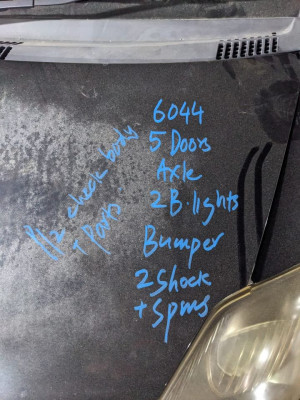 6044
5 Doors
Axle
2 B.lights
Bumper
2 Shock
+ Spms
check body
+ Parts